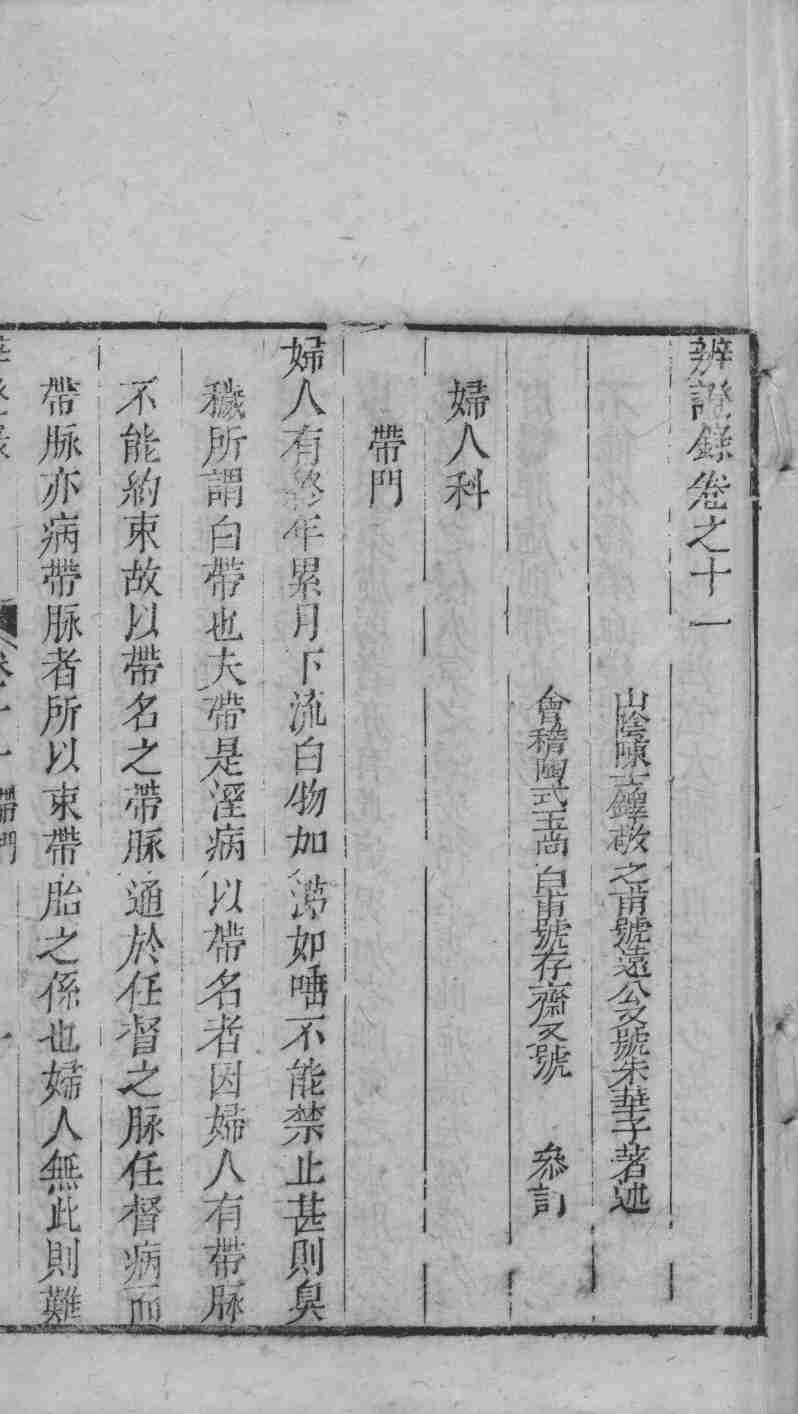 辨證錄卷之十一
山陰陳士鐸敬之甫號遠公又號朱華子著述
會稽陶式玉尚白甫號存齋又號　參訂
婦人科
帶門
婦人有終年累月下流白物如涕如唾不能禁止甚則臭
穢所謂白帶也夫帶是溼病以帶名者因婦人有帶脉
不能約束故以帶名之帶脉通於任督之脉任督病而
帶脉亦病帶脉者所以束帶胎之係也婦人無此則難
卷十一 帶門 一